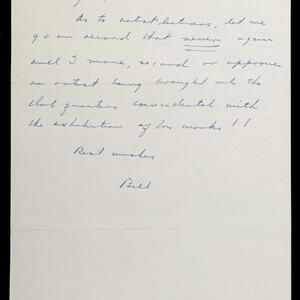 As to artist-lecturers, let me
go on record that never again
will I move, second or approve
an artist being brought into the
club quarters coincidental with
the exhibition of his works!!
Best wishes
Bill